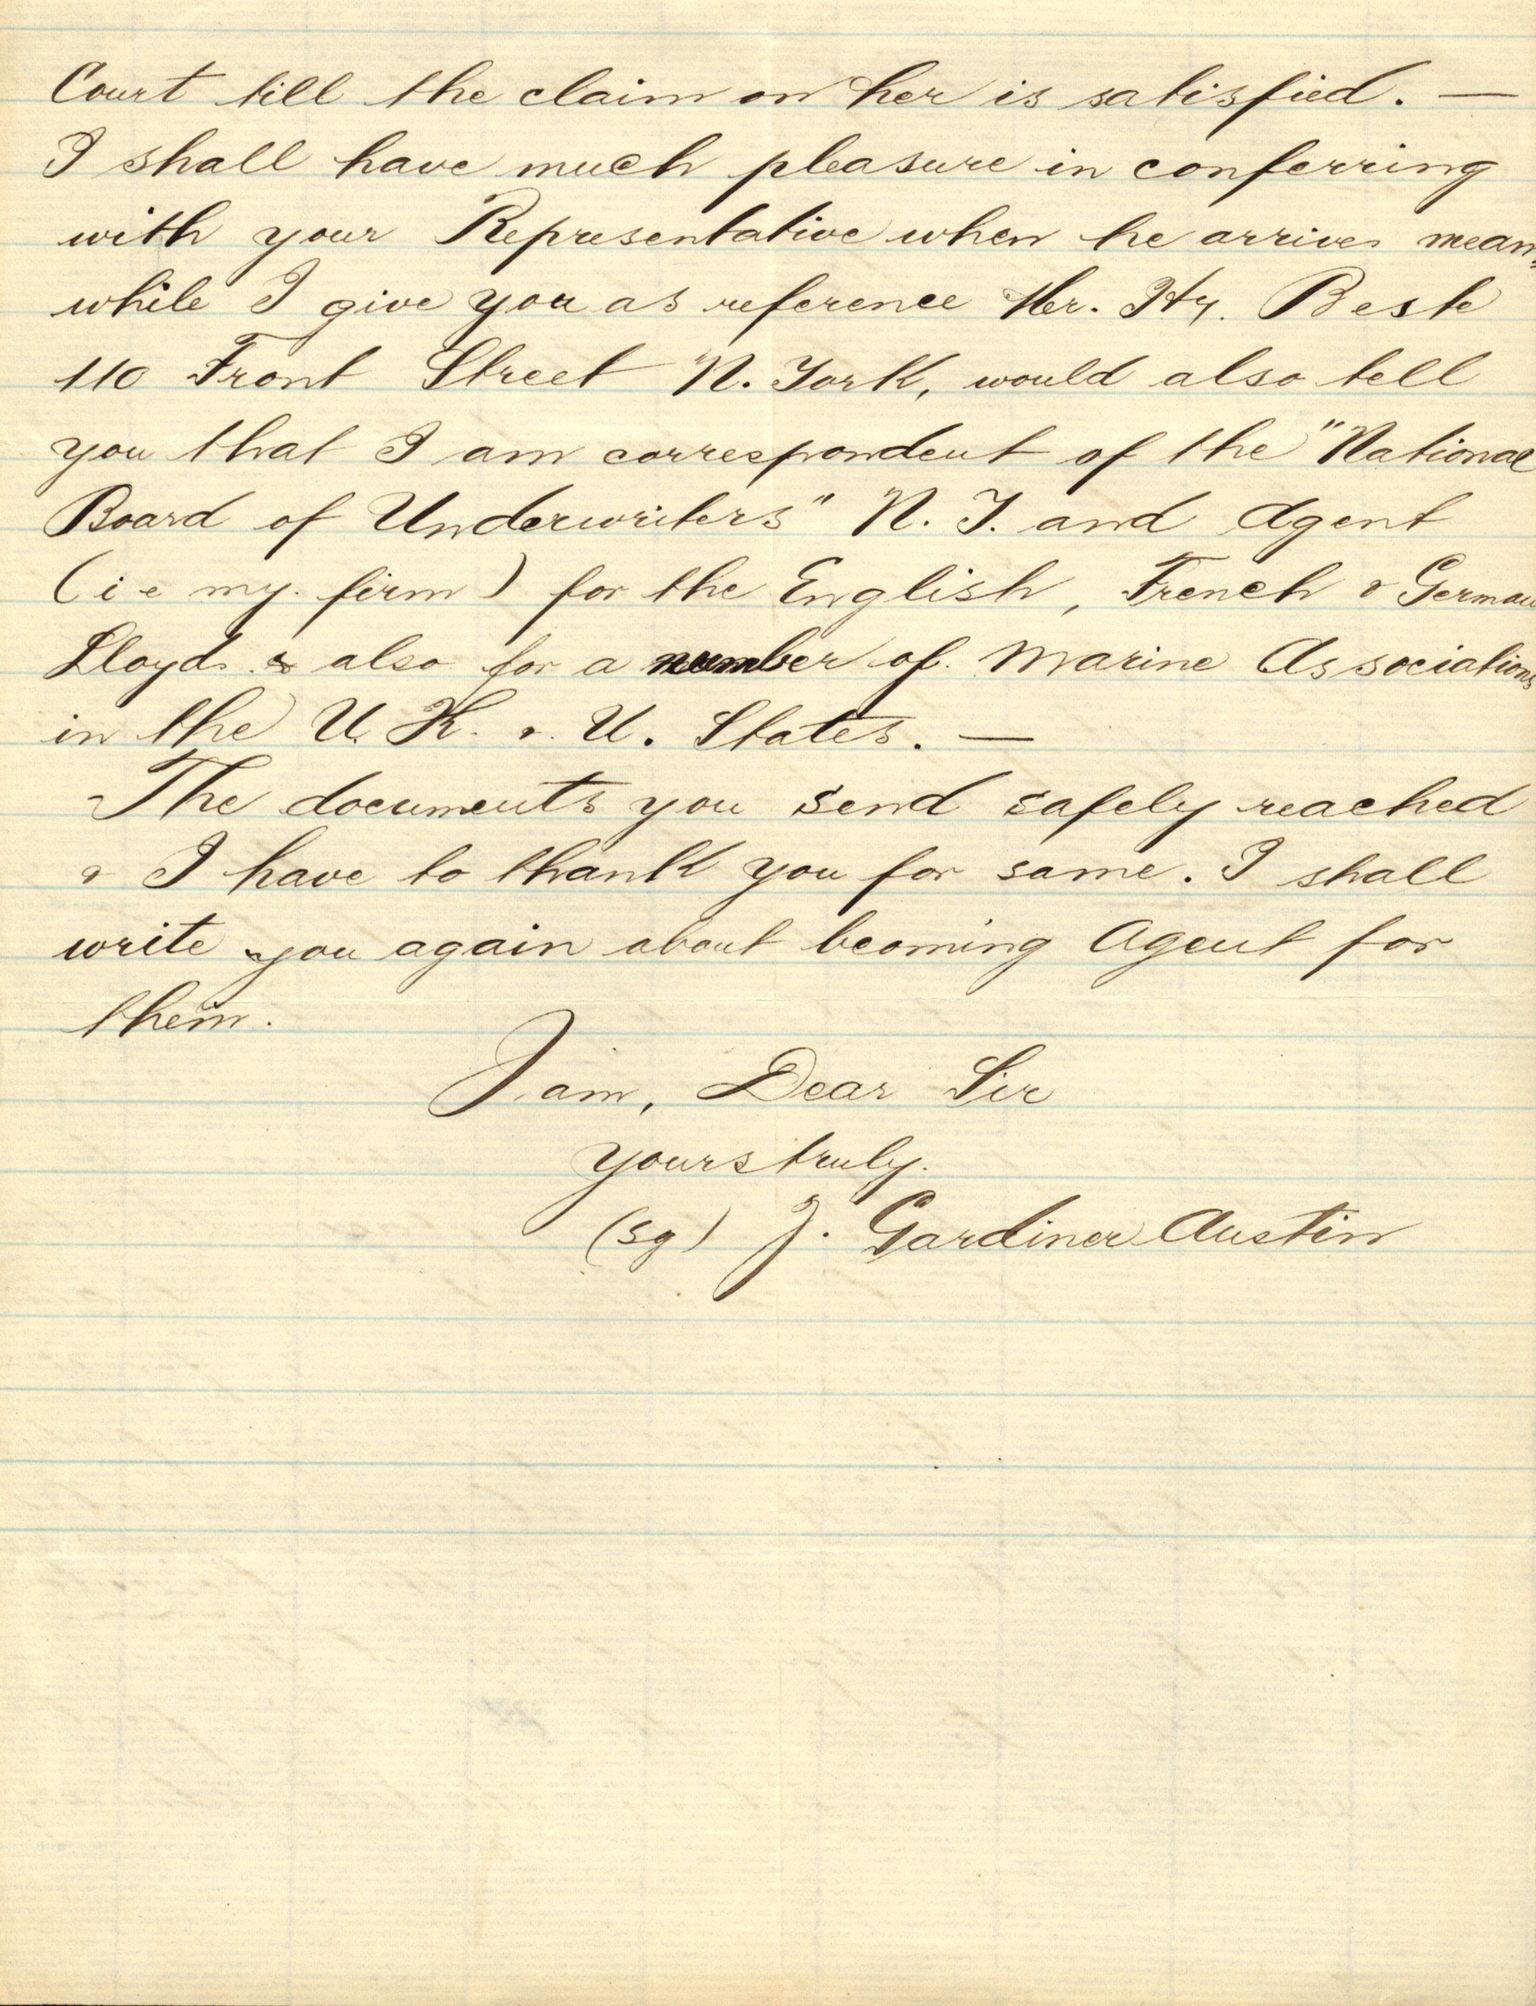 Court till the claim on her is satisfied. —
I shall have much pleasure in conferring
with your Representative when he arrives mean,
while I give you as reference Mr. Hy. Beste
110 Front Street N. York, would also tell
you that I am correspondent of the "National
Board of Underwriters" N. Y. and Agent
(i e my firm) for the English, French & German
Lloyds & also for a number of Marine Associations
in the U. K. & U. States. —
The documents you send safely reached
& I have to thank you for same. I shall
write you again about becoming Agent for
them.
I am, Dear Sir
yours truly.
(sg) J. Gardiner Austin